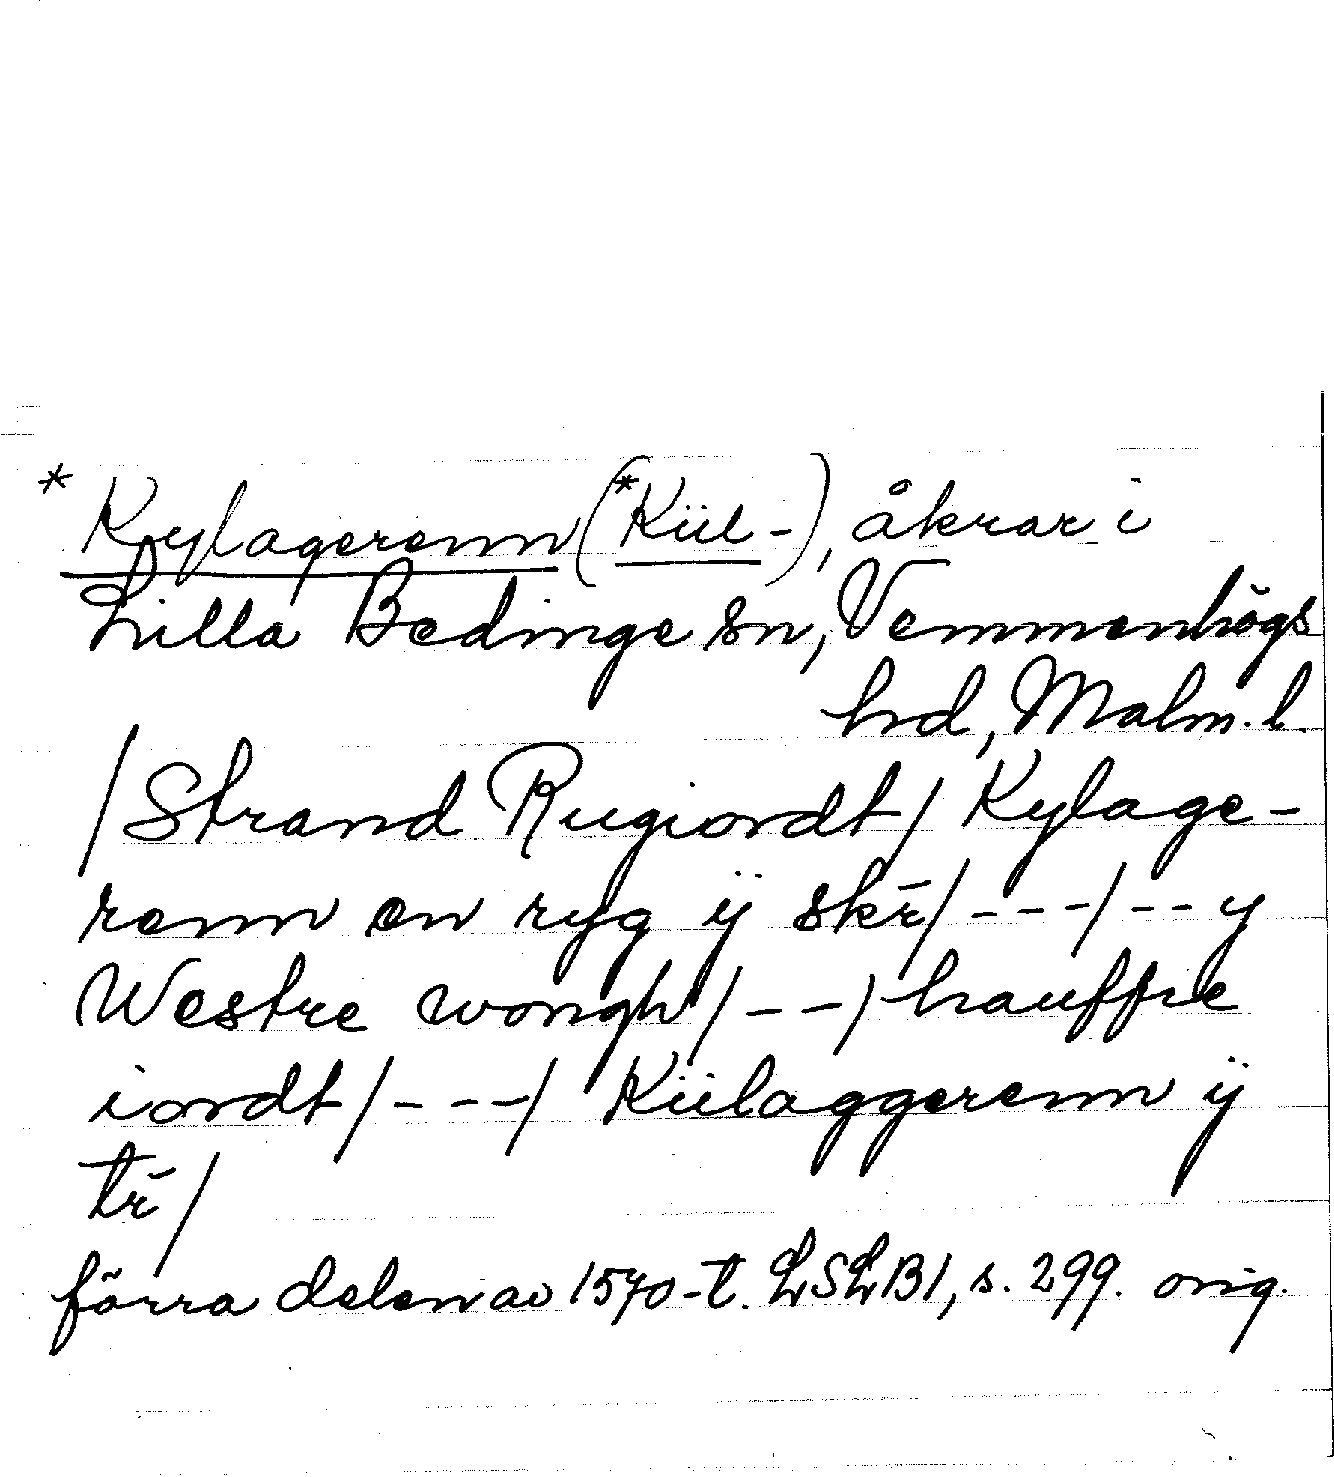 *Kylagerenn (*Kiil-), åkrar i
Lilla Bedinge sn, Vemmenhögs
hd, Malm. l.
/Strand Rugiordt/ Kylage-
renn en ryg ÿ skr̄/---/--y
Westre wongh/--/hauffre
iordt/---/ Kiilaggerenn ÿ
tr̄/
förra delen av 1570-t. LSLB1, s. 299. orig.